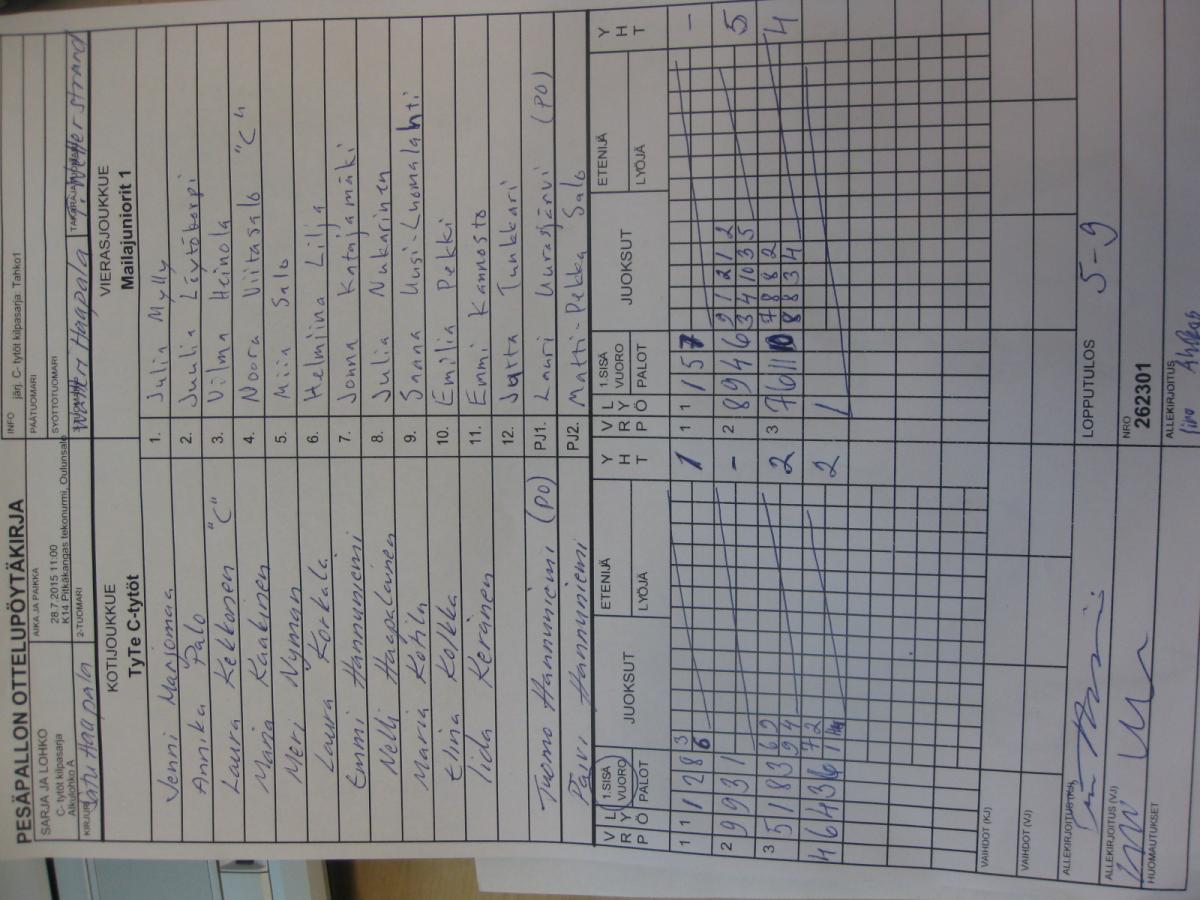 PESÄPALLON OTTELUPÖYTÄKIRJA
INFO järj. C- tytöt kilpasarja: Tahko1
SARJA JA LOHKO
C- tytöt kilpasarja
Alkulohko A
AIKA JA PAIKKA
28.7.2015 11:00
K14 Pitkäkangas tekonurmi, Oulunsalo
PÄÄTUOMARI
SYÖTTÖTUOMARI
KIRJURI Haapala
2-TUOMARI
Haapala
KOTIJOUKKUE
TyTe C-tytöt
VIERASJOUKKUE
Mailajuniorit 1
Venni Marjomaa 1. Julia Mylly
Annika Palo 2. Juulia Löytökorpi
Laura Kekkonen "C" 3. Vilma Heinola
Maria Kaakinen 4. Noora Viitasalo "C"
Meri Nyman 5. Miia Salo
Laura Korkala 6. Helmiina Lilja
Emmi Hannuniemi 7. Jonna Katajamäki
Nelli Haapalainen 8. Julia Nukarinen
Maria Kotila 9. Sanna Uusi-Luomalahti
Elina Kolkka 10. Emilia Pekki
Iida Keränen 11. Emmi Kannosto
12. Jatta Tunkkari
Tuomo Hannuniemi (PO) PJ1. Lauri Uurasjärvi (PO)
Päivi Hannuniemi PJ2. Matti-Pekka Salo
V R P L Y Ö 1.SISÄ VUORO PALOT JUOKSUT ETENIJÄ LYÖJÄ Y H T
V R P L Y Ö 1.SISÄ VUORO PALOT JUOKSUT ETENIJÄ LYÖJÄ Y H T
1 1 1 2 8 3 6 1
1 1 1 5 7 -
2 9 9 3 1 -
2 8 9 4 6 5
3 5 1 8 3 2
3 7 6 11 10 4
4 6 4 3 6 2
1
VAIHDOT (KJ)
VAIHDOT (VJ)
ALLEKIRJOITUS (KJ)
LOPPUTULOS 5-9
ALLEKIRJOITUS (VJ)
NRO
262301
HUOMAUTUKSET
ALLEKIRJOITUS